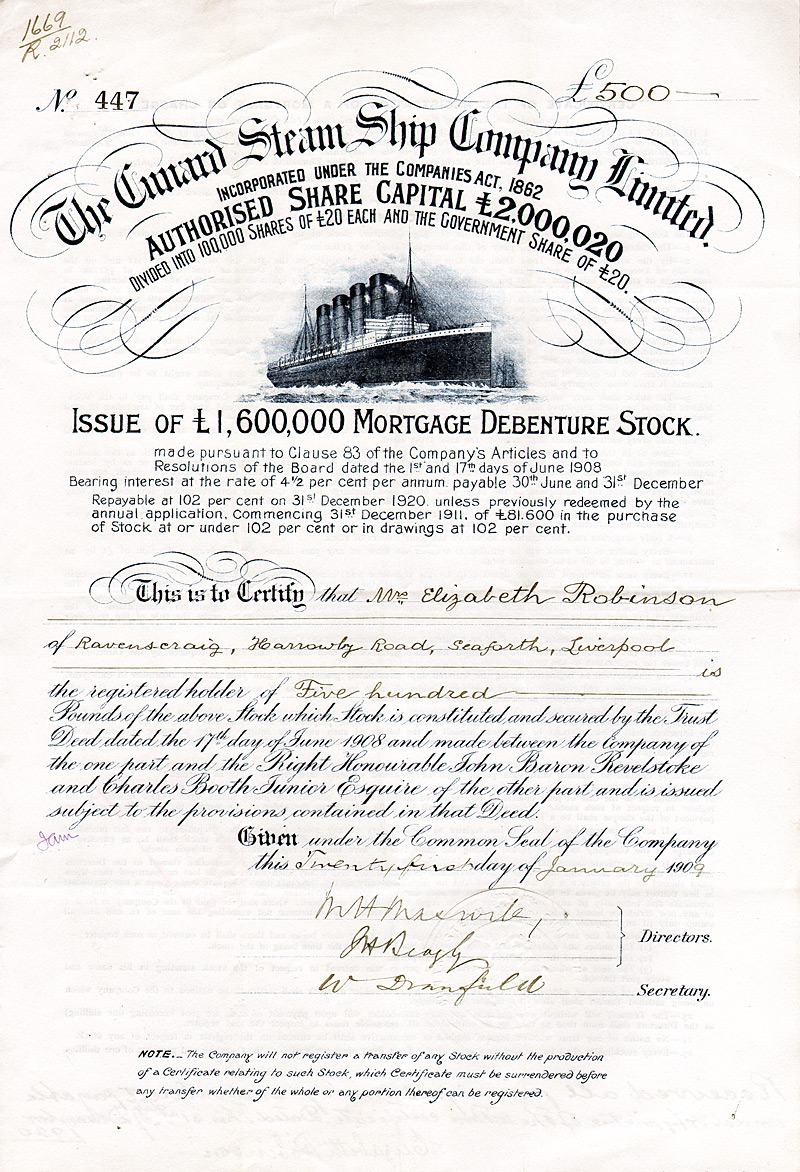 1669
R. 2112.
No. 447
£500
The Cunard Steam Ship Company Limited.
INCORPORATED UNDER THE COMPANIES ACT, 1862
AUTHORISED SHARE CAPITAL £2.000,020
DIVIDED INTO 100,000 SHARES OF £20 EACH AND THE GOVERNMENT SHARE OF £20.
ISSUE OF £1,600,000 MORTGAGE DEBENTURE STOCK.
made pursuant to Clause 83 of the Company's Articles and to
Resolutions of the Board dated the 1st and 17th days of June 1908
Bearing interest at the rate of 4½ per cent per annum. payable 30th June and 31st December
Repayable at 102 per cent on 31st December 1920. unless previously redeemed by the
annual application, Commencing 31st December 1911, of £81.600 in the purchase
of Stock at or under 102 per cent or in drawings at 102 per cent.
This is to Certify that Mrs Elizabeth Robinson
of Ravenscraig, Harrowby Road, Seaforth, Liverpool
is
the registered holder of Five hundred
Pounds of the above Stock which Stock is constituted and secured by the Trust
Deed dated the 17th day of June 1908 and made between the Company of
the one part and the Right Honourable John Baron Revelstoke
and Charles Booth Junior Esquire of the other part and is issued
subject to the provisions contained in that Deed.
Given under the Common Seal of the Company
this Twenty first day of January 1909
Directors.
W Dranfield
Secretary.
NOTE._ The Company will not register a transfer of any Stock without the production
of a Certificate relating to such Stock, which Certificate must be surrendered before
any transfer whether of the whole or any portion thereof can be registered.